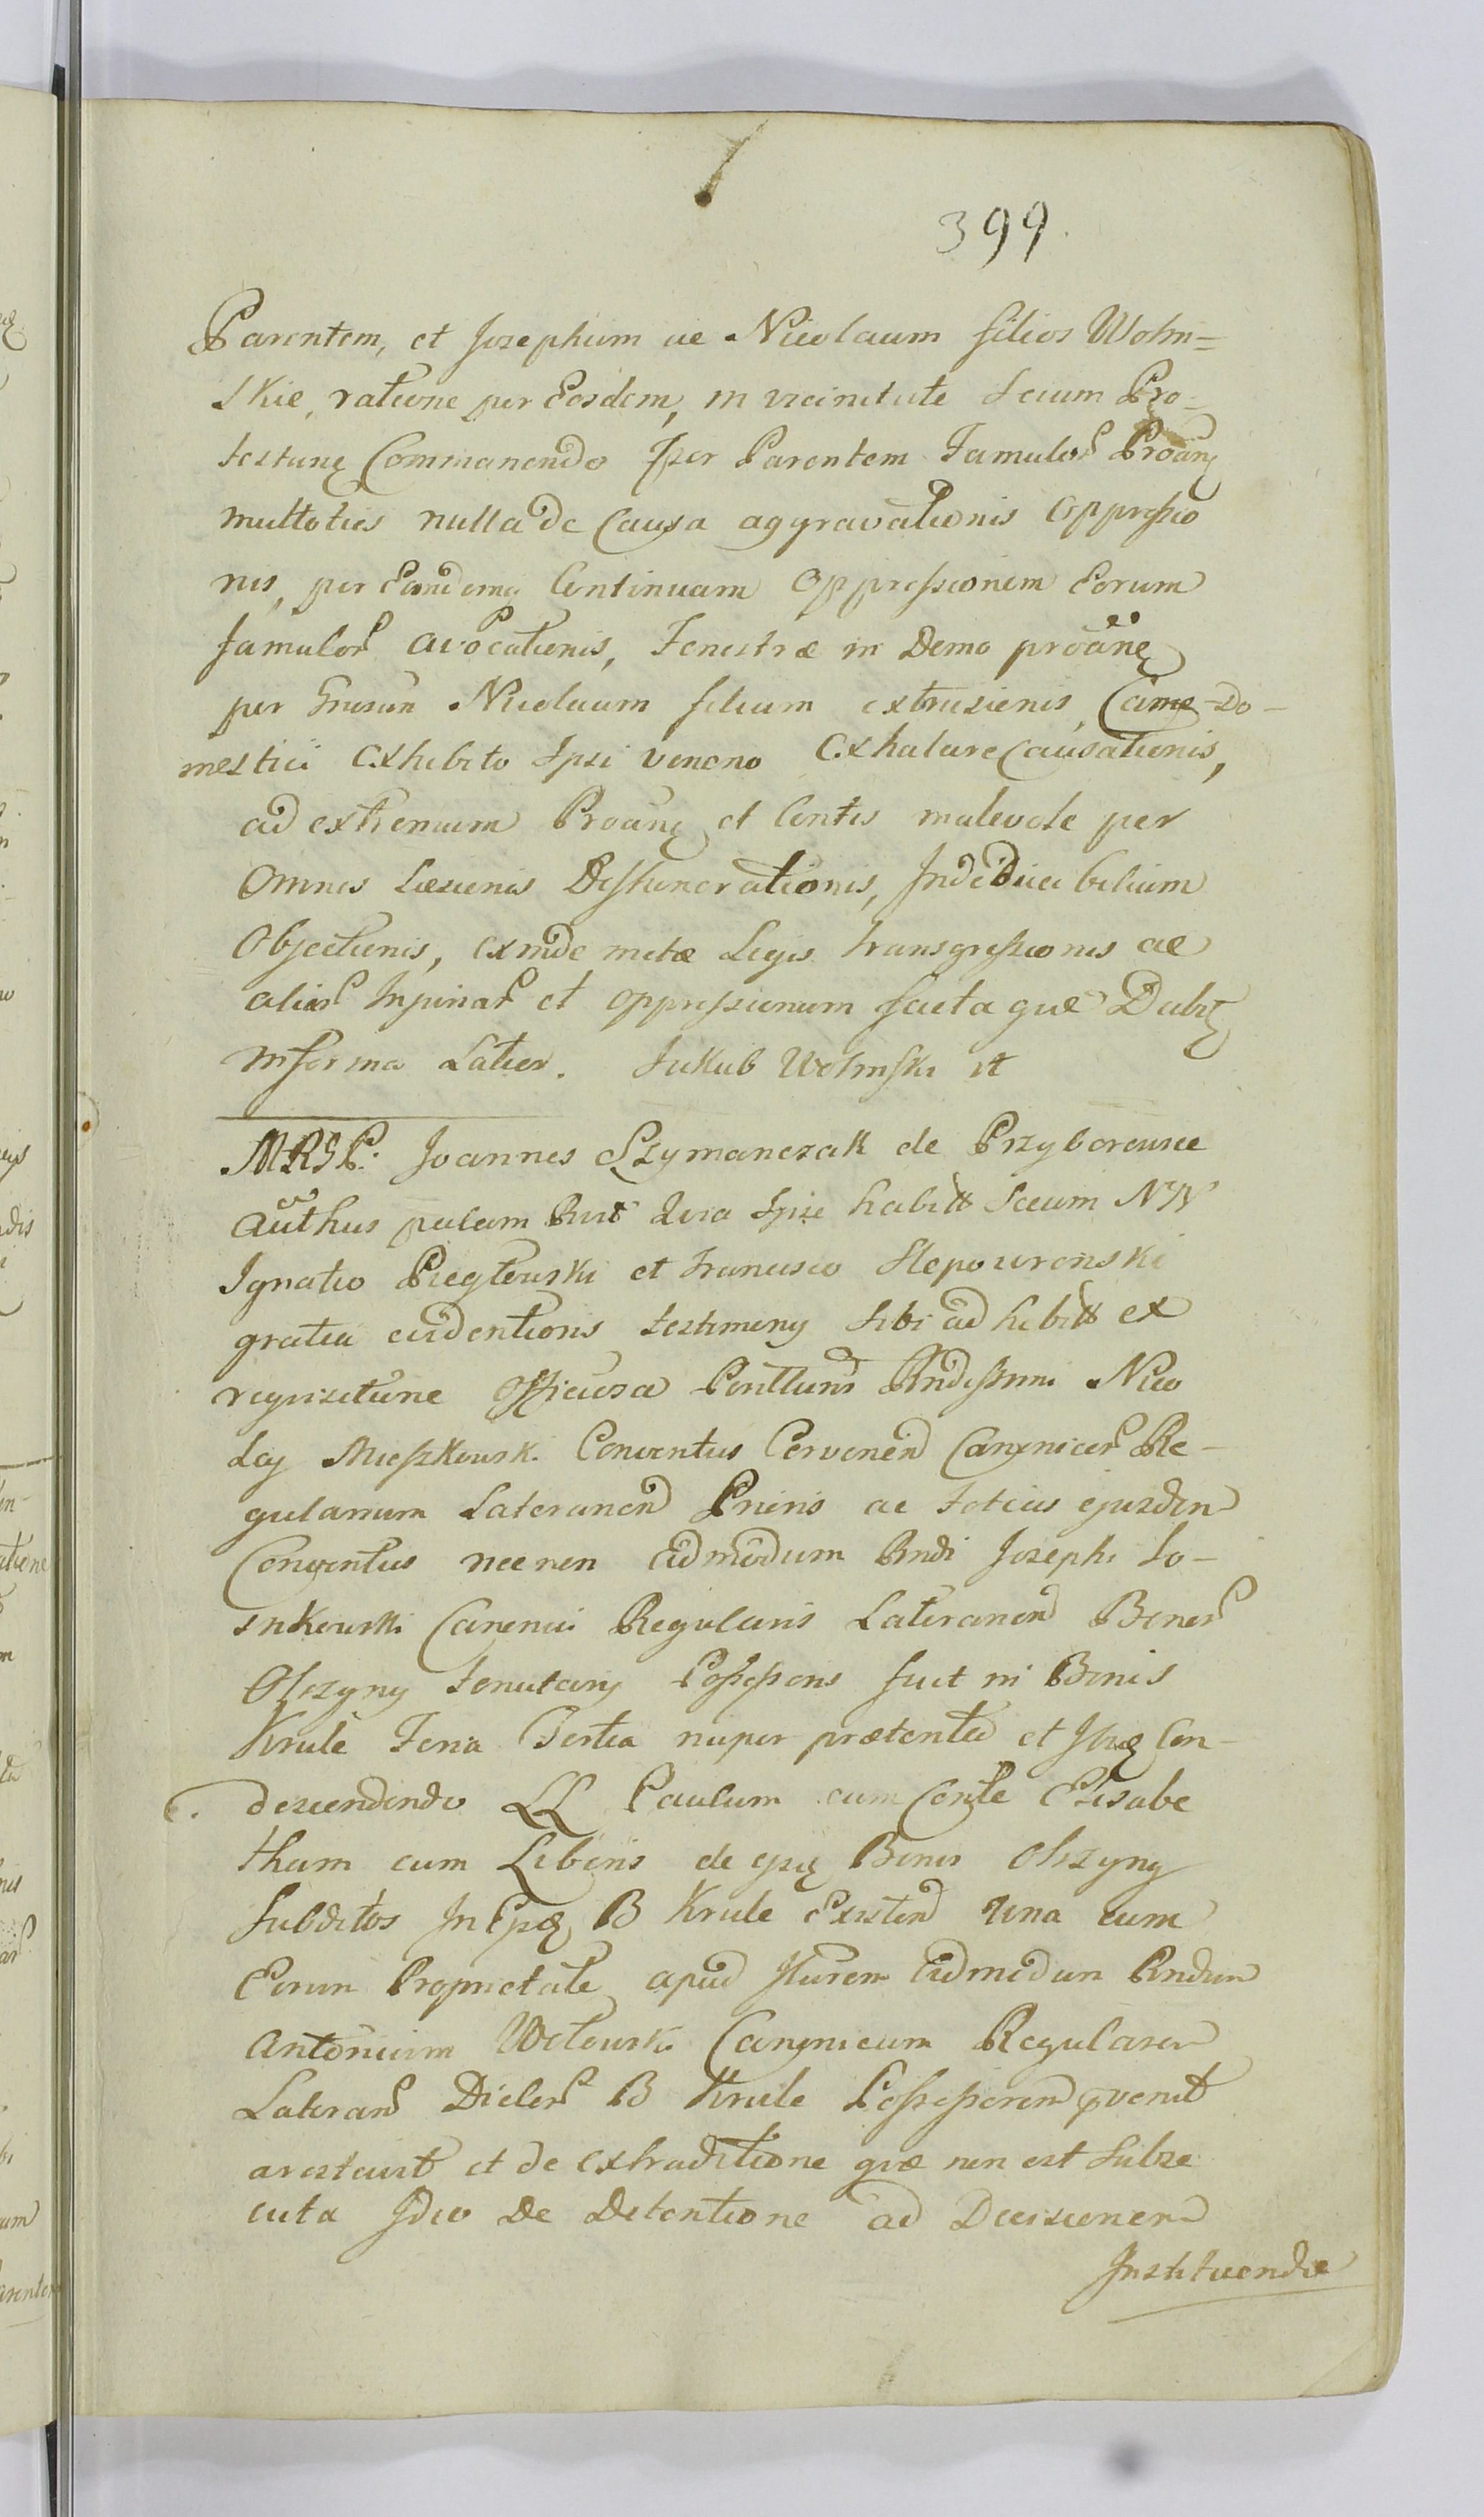 399.
Parentem, et Josephum ac Nicolaum filios Wolin=
skie, ratione per Eosdem, in vicinitate secum Pro=
testanĝ Commanendo per Parentem Famulor Proanĝ
multoties nulla de Causa aggravationis oppressio
nis, per Eandemq Continuam Oppressionem Eorum
famulor avocationis, Fenestræ in Domo proane
per Nicolaum filium extrusionis, Canis Do-
mestici exhibito Ipsi veneno Exhalare Causationis,
ad extremum Proanĝ et Contes malevole per
Omnes Læsionis Deshonorationis, Indedicibilium
Objectionis, exinde metæ Legis transgressionis ac
aliar Injuriar et oppressionum facta que Dabit
in forma Latior. Jakub Wolinski
MRGP. Joannes Szymanczak de Przyborowie
Authus palam Rect Quia Ipse habitt Secum NN
Ignatio et Francisco
gratia evidentioris testimony sibi adhibitt ex
requisitione Officiosa Perilluris Rndissimi Nico
lay Mieszkowski Conventus Cervenen Canonicor Re-
gularium Lateranen Prioris ac Totius ejusdem
Conventus necnon admodum Rndi Josephi Lo-
Canonici Regularis Lateranen Bonor
Olszyny Tenutary Possessoris fuit in Bonis
Krule Feria Tertia nuper prætenta et Ibiq Con-
descendendo LL Paulum cum Conte Elisabe
tham cum Liberis de Bonis Olszyny
Subditos In B Krule Existen una cum
Eorum Proprietate apud Ilurem admodum Rndum
Antonium Canonicum Regularem
Lateran Dictor B Krule Possessorem pvenit
arestavit et de extraditione quæ non est Subse
cuta Ideo De Detentione ad Decisionem
Instituendæ